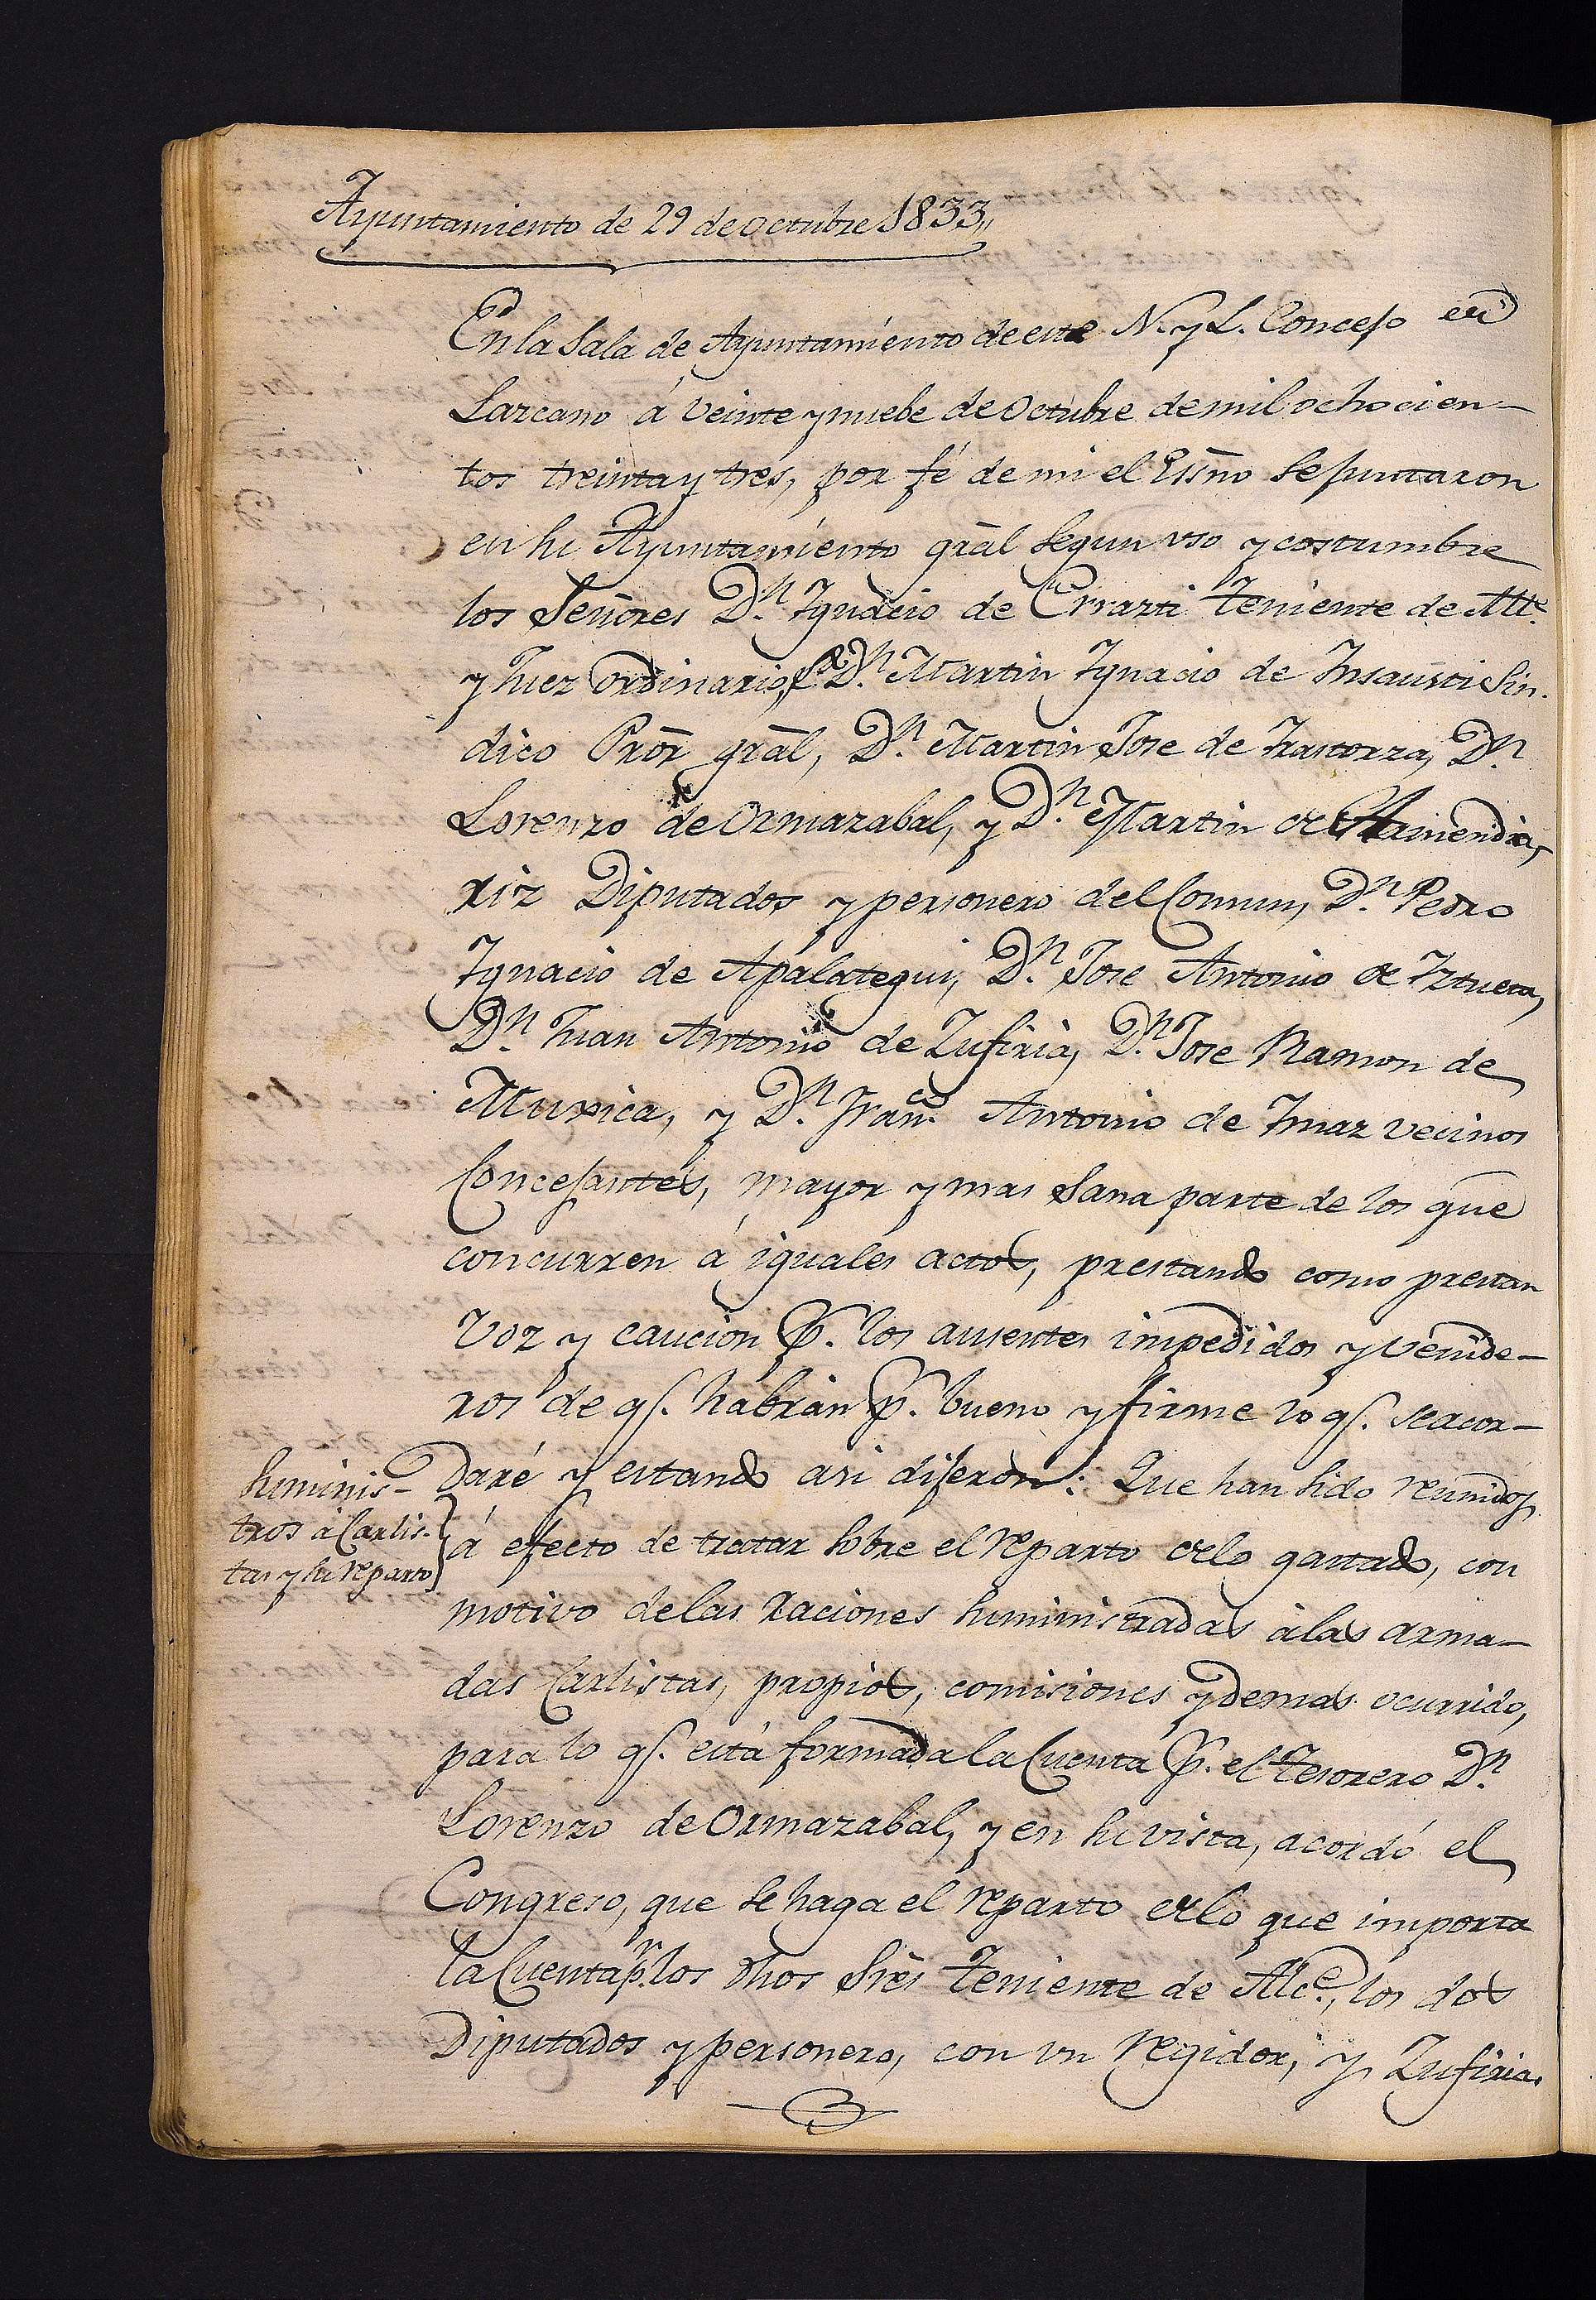 Ayuntamiento de 29 de Octubre 1833,,
En la Sala de Ayuntamiento de este N. y L. Concejo en
Lazcano á veinte y nuebe de Octubre de mil ochocien-
tos treinta y tres, por fé de mi el Essño se juntaron
en su Ayuntamiento gral segun uso y costumbre
los Señores Dn. Ygnacio de Errazti teniente de Alle.
y Juez Ordinario, Dn. Martin Ygnacio de Insausti Sin-
dico Prõr grãl, Dn. Martin Jose de Irastorza, Dn.
Lorenzo de Ormazabal, y Dn. Martin de Armenda-
riz Diputados y personero del Comun, Dn. Pedro
Ygnacio de Apalategui, Dn. Jose Antonio de Iztueta,
Dn. Juan Antonio de Zufiria, Dn. Jose Ramon de
Muxica, y Dn. Franco. Antonio de Imaz vecinos
Concejantes, mayor y mas sana parte de los que
concurren á iguales actos, prestando como prestan
voz y caucion p. los ausentes impedidos y venide-
ros de q. habràn p. bueno y firme lo q. se acor-
daré y estando asi dijeron: Que han sido reunidos
suminis-
tros à Carlis-
tas y su reparto
á efecto de tratar sobre el reparto de lo gastado, con
motivo de las raciones suministradas à las arma-
das Carlistas, propios, comisiones y demas ocurrido,
para lo q. está formada la Cuenta p. el tesorero Dn.
Lorenzo de Ormazabal, y en su vista, acordó el
Congreso, que se haga el reparto de lo que importa
la Cuenta pr. los dhos Srès teniente de Alce., los dos
Diputados y personero, con un regidor, y Zufiria.